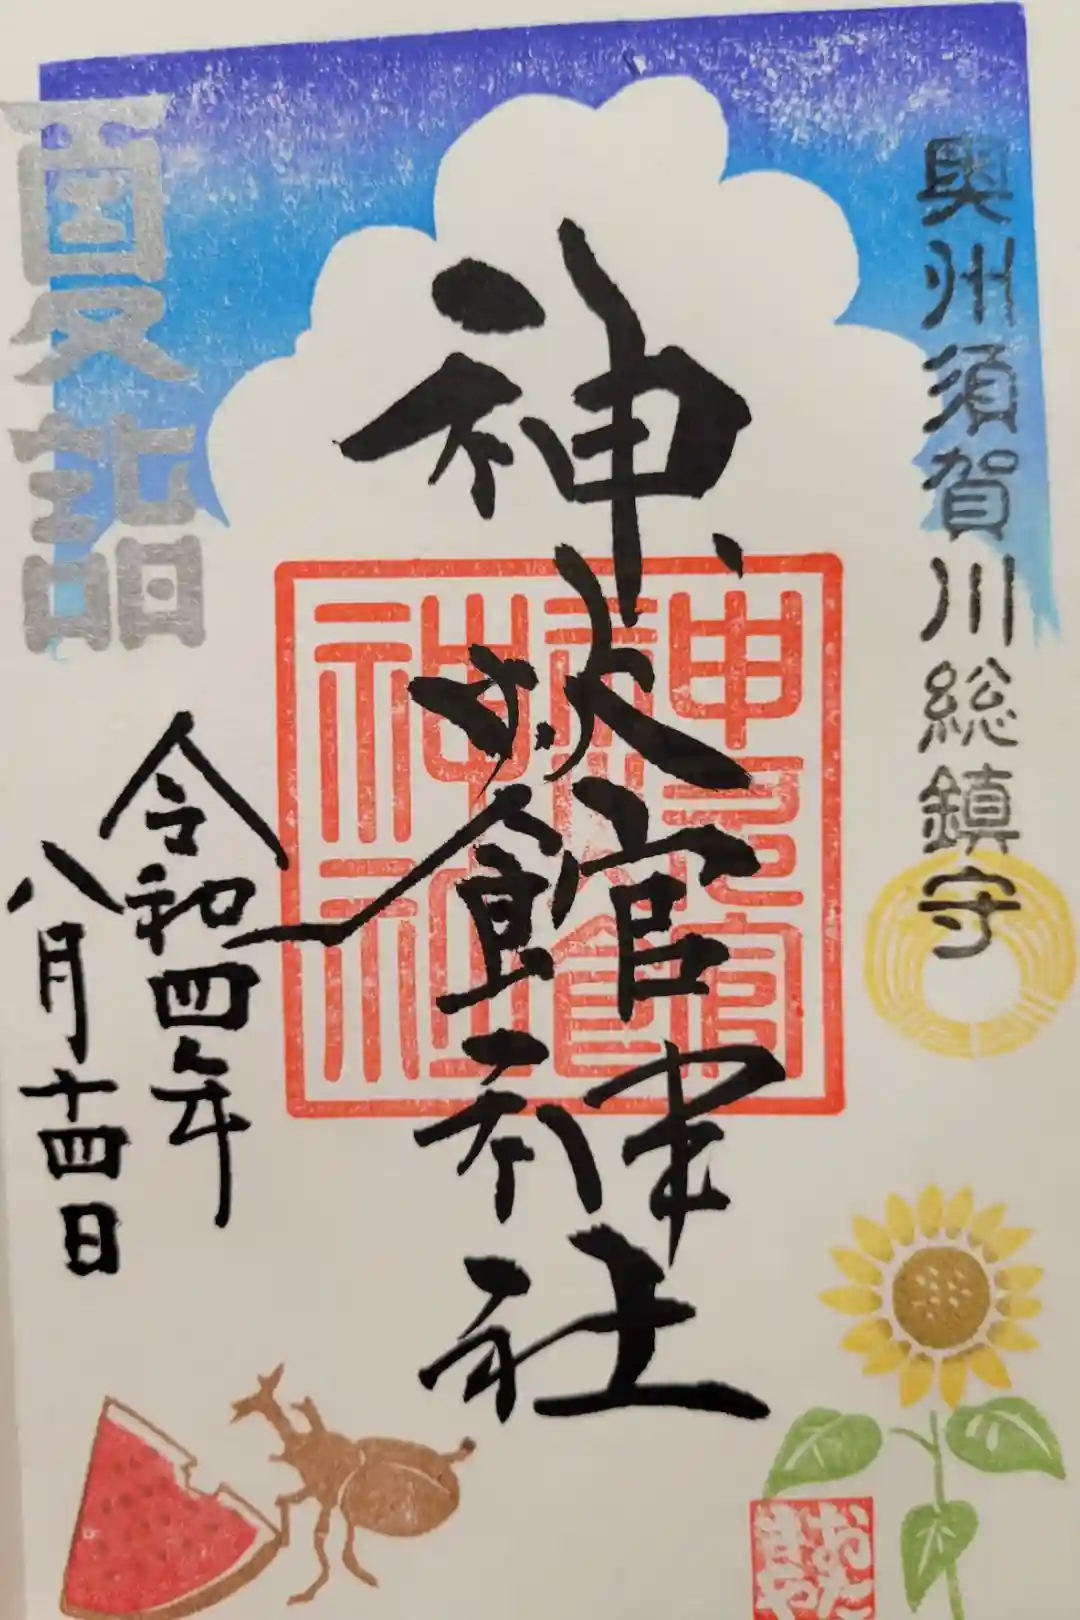 奥州須賀川総鎮守
神炊館神社
神炊館神社
令和四年
八月十四日
夏詣
おた
きや